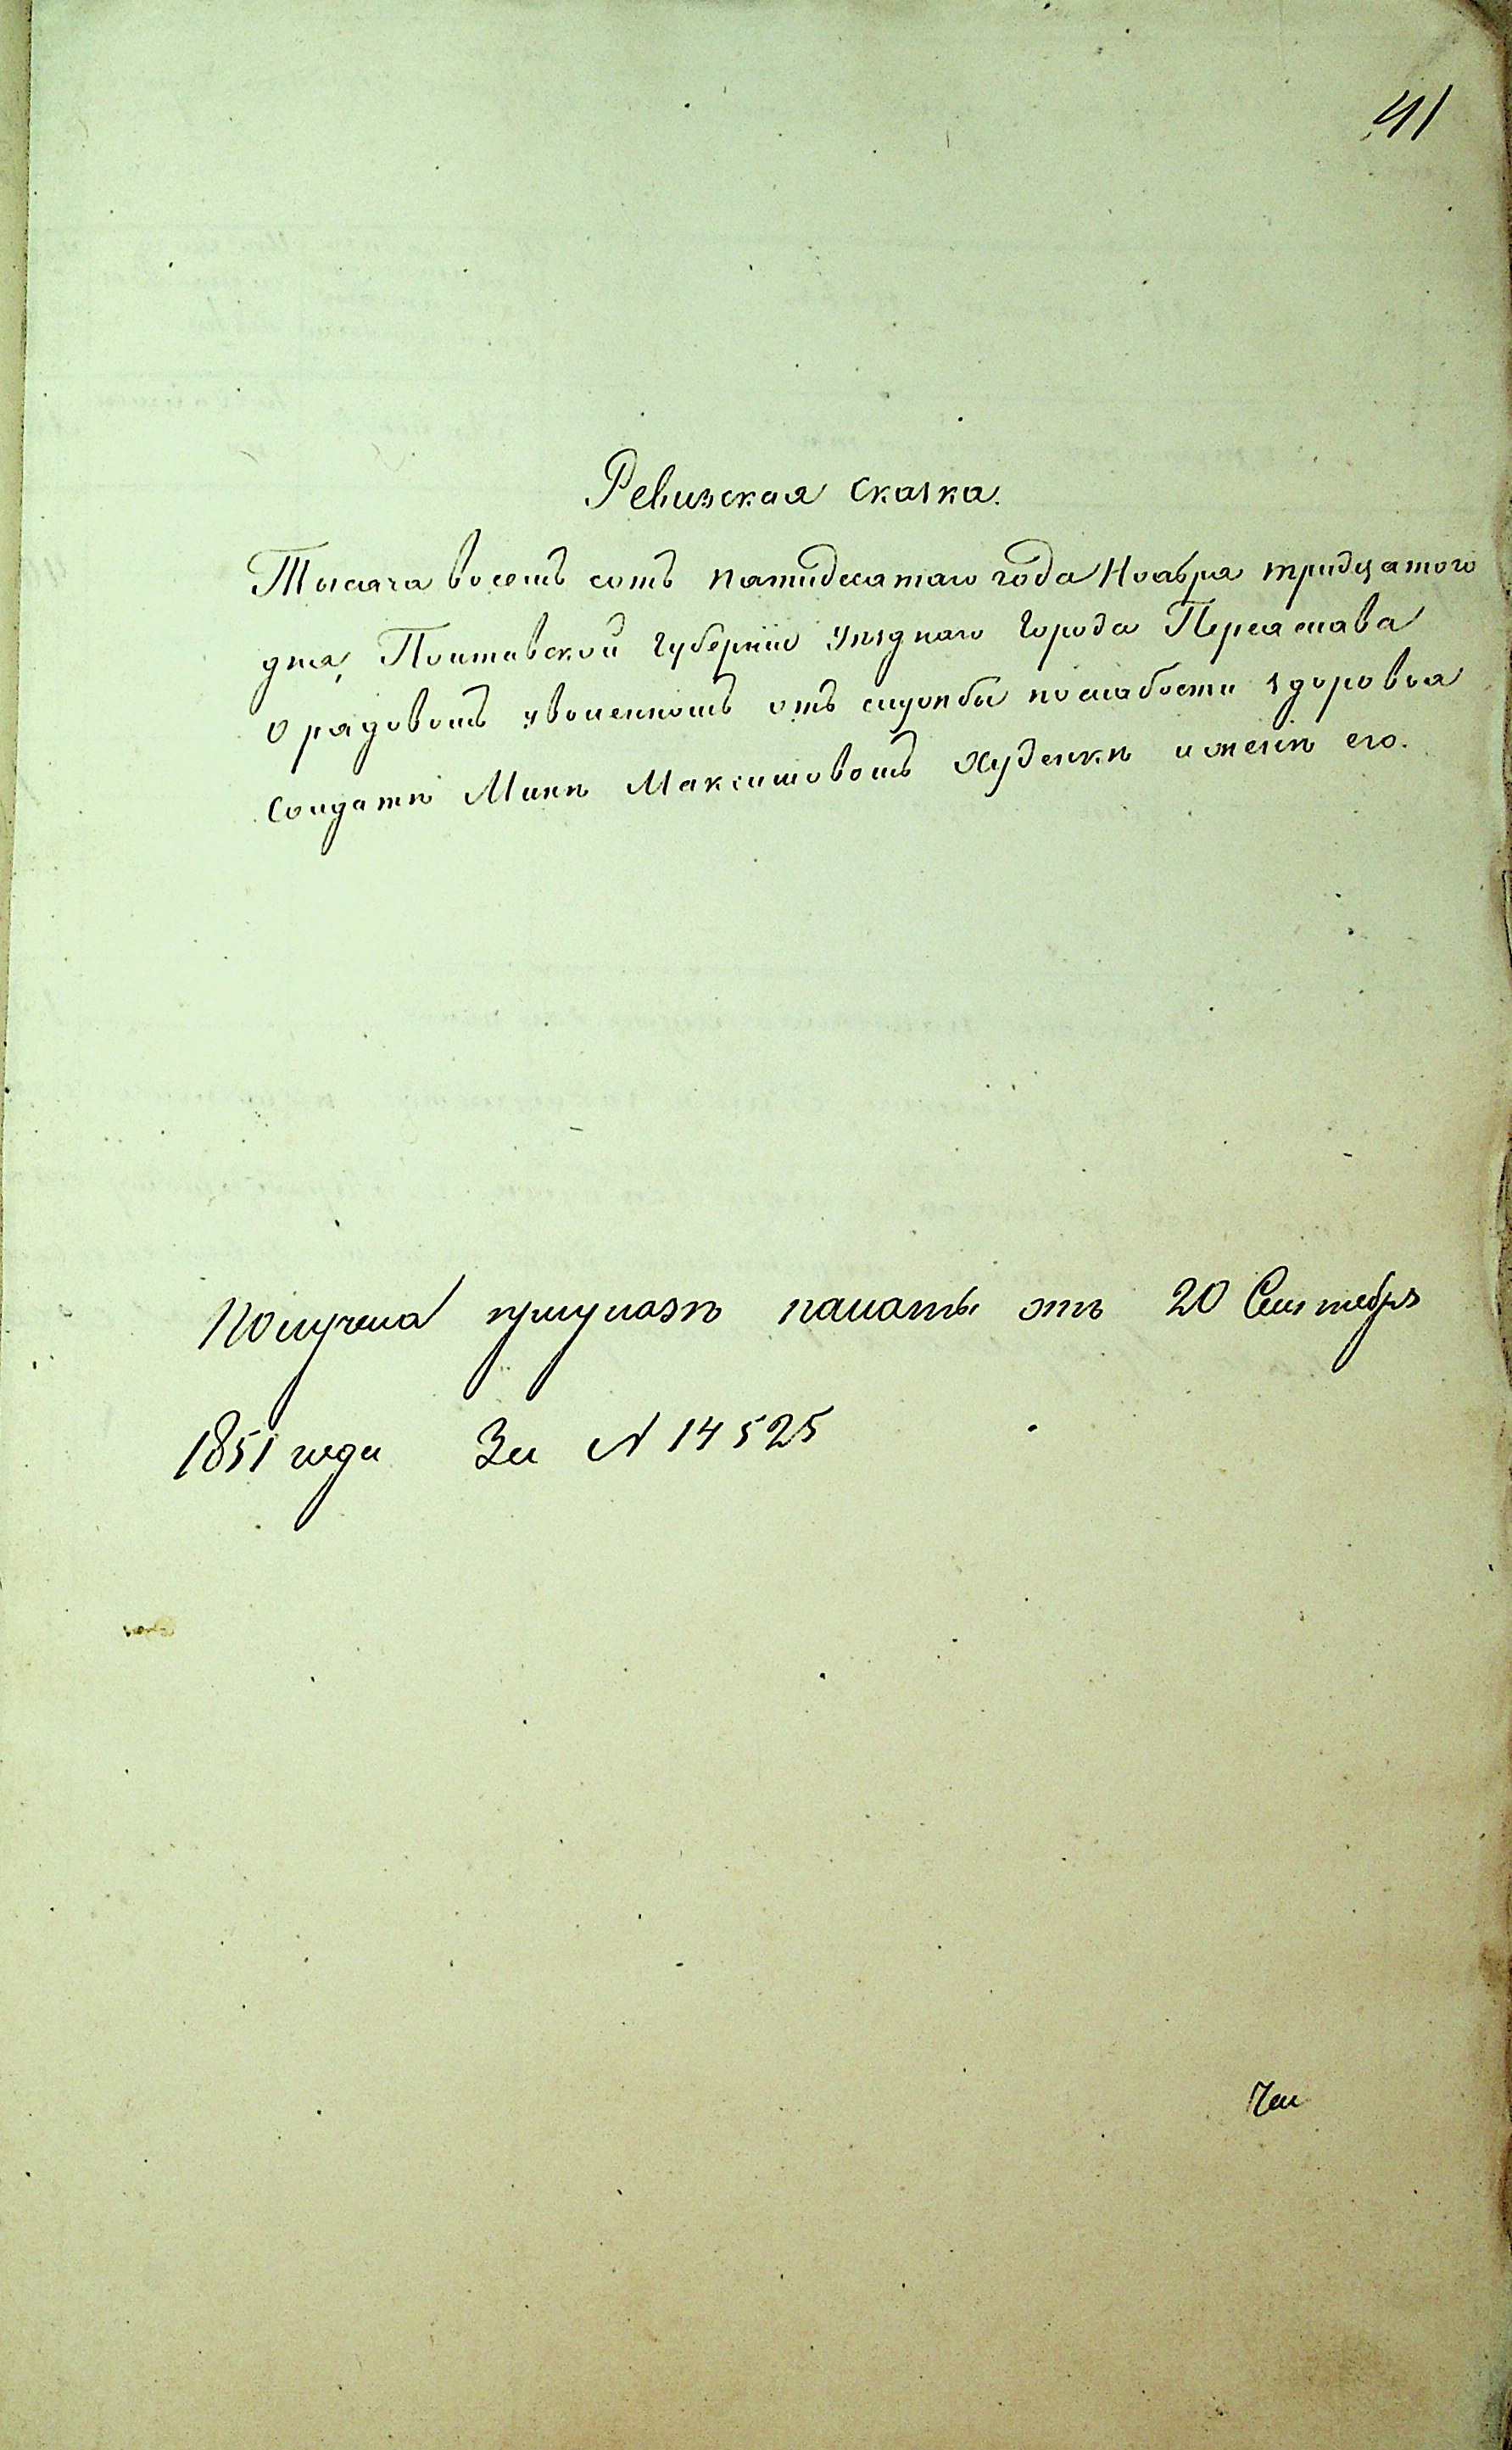 41
Ревизская сказка.
Тысяча восемъ сотъ пятидесятаго года Ноября тридцатого
дня, Полтавской губерніи Уѣзднаго города Переяслава
о рядовомъ уволенномъ отъ службы по слабости здоровья
солдатѣ Минѣ Максимовомъ Худенкѣ и женѣ его.
Получена при указѣ палаты отъ 20 Сентября
1851 года За N 14525